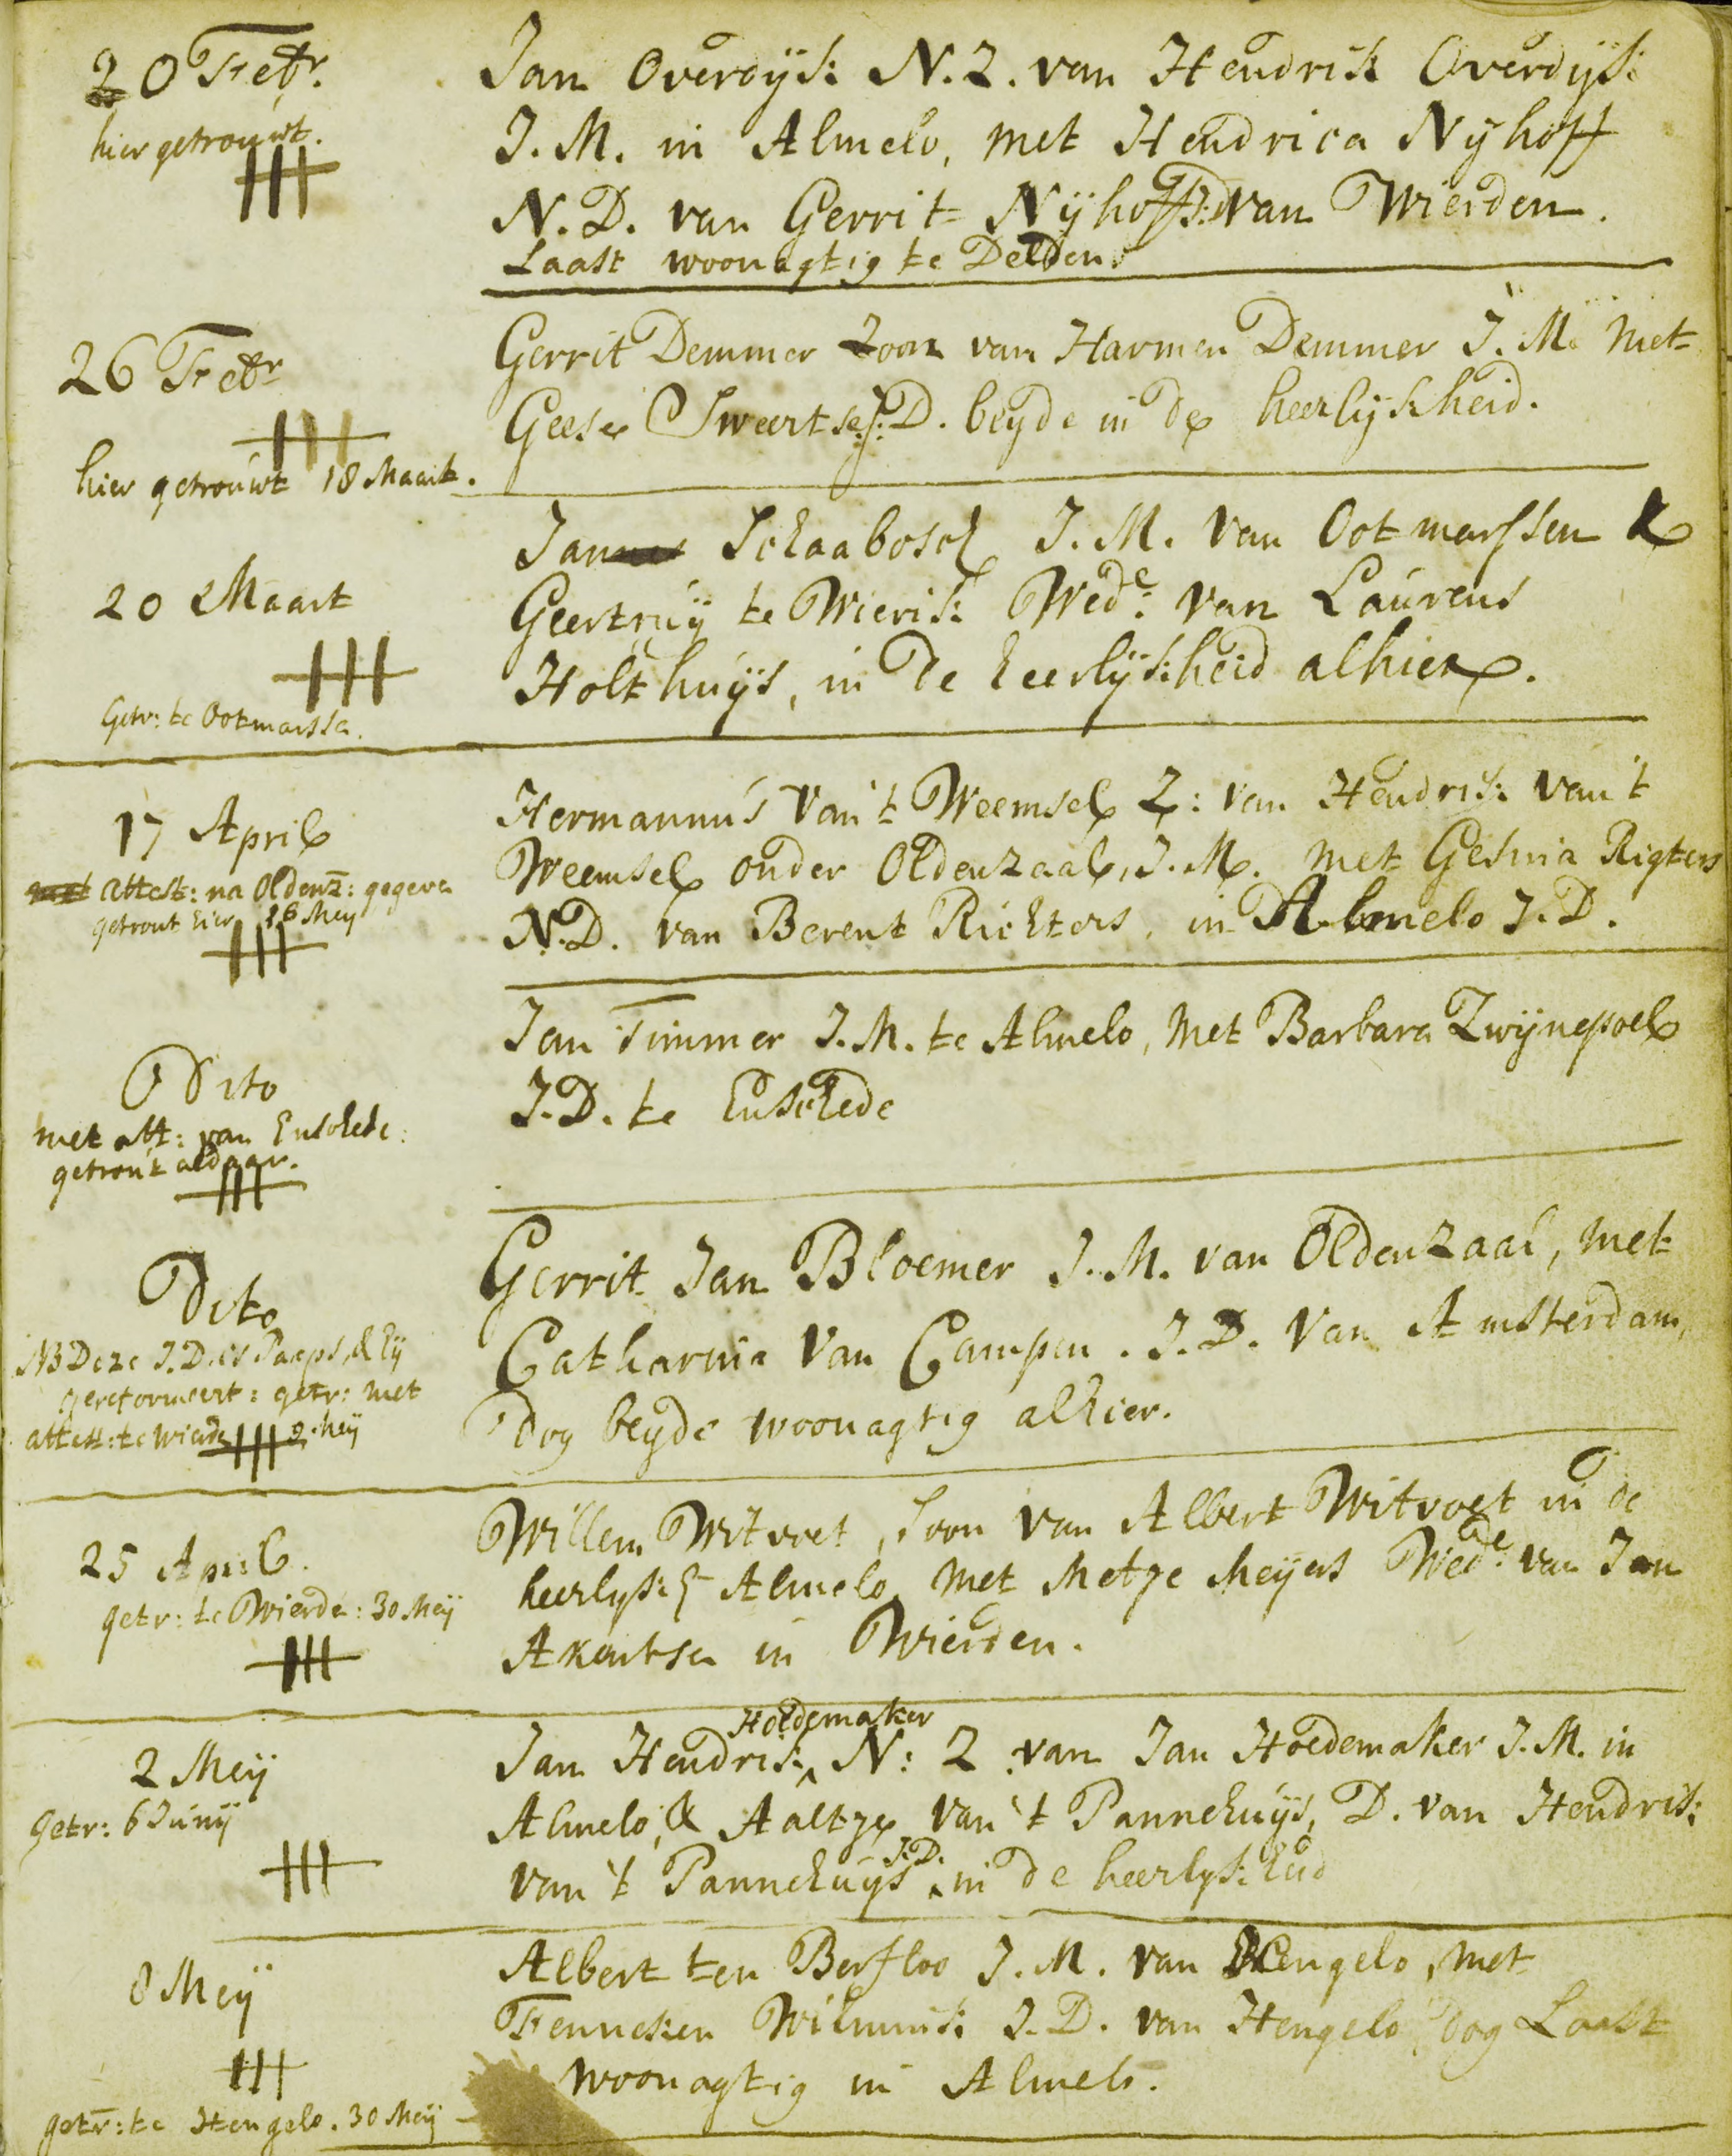 20 Febr.
hier getrouwt.
Jan Overdijk N.Z. van Hendrik Overdijk
J.M. in Almelo, met Hendrica Nyhoff
N.D. van Gerrit Nijhoff J:D van Wierden.
Laast woonagtig te Delden
26 Febr
hier getrouwt 18 Maart.
Gerrit Demmer Zoon van Harmen Demmer J.M. met
Geese Sweertse J:D. beyde in de heerlijkheid.
20 Maart
Getr: te Ootmarsse.
Jan Schaabosch J.M. van Ootmarssen &
Geertruij te Wierik Wede: van Laurens
Holthuijs, in de heerlijkheid alhier.
17 April
attest: na Oldenz: gegeven
getrout hier 16 Mey
Hermannus van't Weemsel Z: van Hendrik van't
Weemsel onder Oldenzaal, J.M. met Gesina Rigters
N.D. van Berent Richters, in Almelo J.D.
Dito
met att: van Enschede:
getrout aldaar.
Jan Timmer J.M. te Almelo, met Barbara Zwijnepoel
J.D. te Enschede
Dito
NB Deze J.D. is Paaps, & hij
gereformeert: getr: met
attest: te Wierde 9 Mey
Gerrit Jan Bloemer J.M. van Oldenzaal, met
Catharina Van Campen. J.D. Van Amsterdam,
dog beyde woonagtig alhier.
25 April.
getr: te Wierde: 30 Meij
Willem Witvoet, Soon van Albert Witvoet in de
heerlijkh Almelo, met Metze Meijers Wede: van Jan
in Wierden.
2 Meij
getr: 6 Junij
Jan Hendrik Hoedemaker N: Z van Jan Hoedemaker J.M. in
Almelo, & Aaltje van't Pannehuijs, D. van Hendrik
van't Pannehuijs J.D. in de heerlijkheid
8 Meij
getr: te Hengelo. 30 Meij
Albert ten Berfloo J.M. van Hengelo, met
Fenneken Wilmink J.D. van Hengelo dog Laast
woonagtig in Almelo.